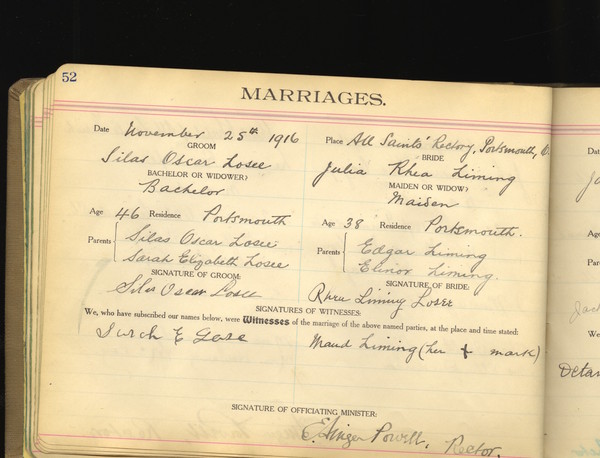 52
MARRIAGES.
Date November 25th 1916 Place All Saints' Rectory, Portsmouth, O.
GROOM BRIDE
Silas Oscar Losee Julia Rhea Liming
BACHELOR OR WIDOWER? MAIDEN OR WIDOW?
Bachelor Maiden
Age 46 Residence Portsmouth Age 38 Residence Portsmouth.
Parents Silas Oscar Losee Parents Edgar Liming
Sarah Elizabeth Losee Elinor Liming.
SIGNATURE OF GROOM: SIGNATURE OF BRIDE:
Silas Oscar Losee Rhea Liming Losee
SIGNATURES OF WITNESSES:
We, who have subscribed our names below, were Witnesses of the marriage of the above named parties, at the place and time stated:
E Maud Liming (her + mark)
SIGNATURE OF OFFICIATING MINISTER:
Powell, Rector.
Dat
Age
Pare
We
Detar